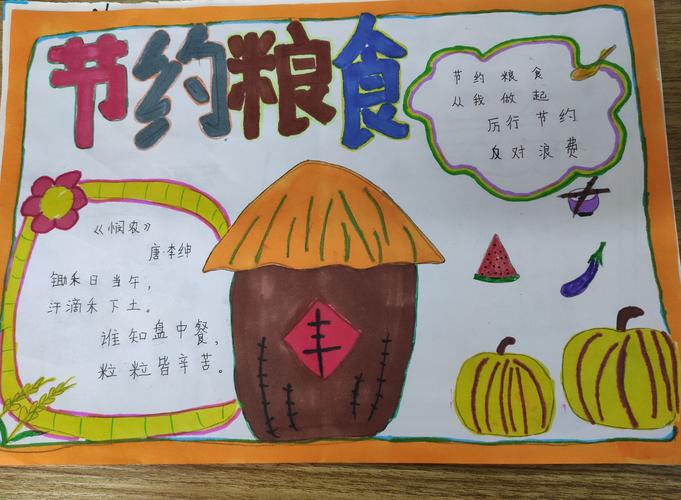 节约粮食
节约粮食
从我做起
厉行节约
反对浪费
《悯农》
唐·李绅
锄禾日当午,
汗滴禾下土。
谁知盘中餐,
粒粒皆辛苦。
丰